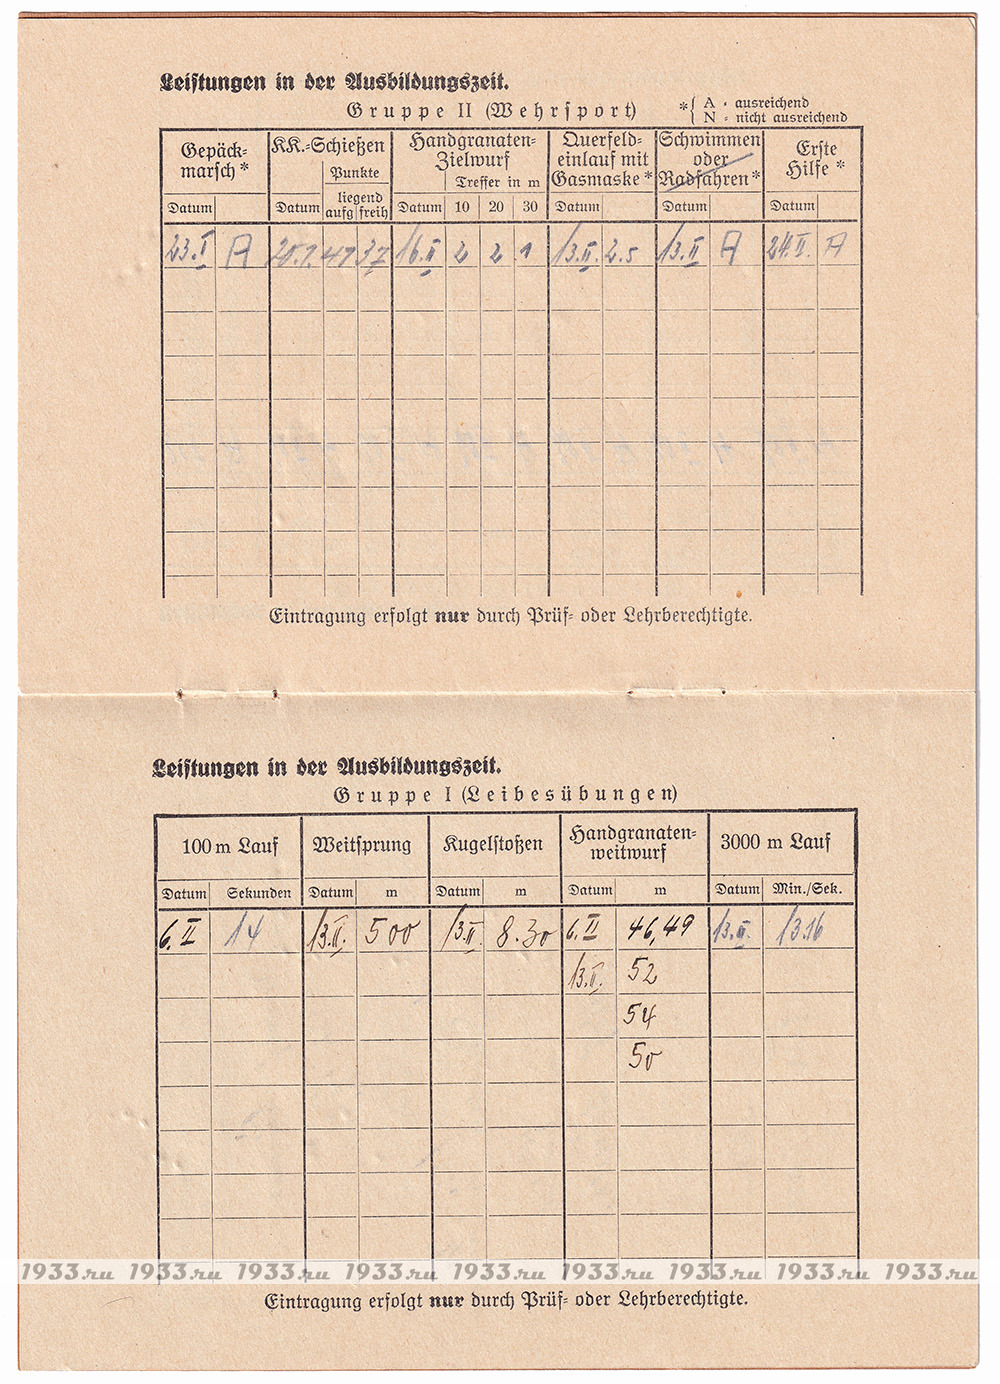 Leistungen in der Ausbildungszeit.
Gruppe II (Wehrsport)
*{ A = ausreichend
N = nicht ausreichend
Gepäck-
marsch *
KK.-Schießen
Punkte
liegend
aufg freih
Handgranaten-
Zielwurf
Treffer in m
Querfeld-
einlauf mit
Gasmaske *
Schwimmen
oder
Radfahren *
Erste
Hilfe *
Datum Datum Datum 10 20 30 Datum Datum Datum
23.I A 20.1. 47 37 16.II 2 2 1 13.II. 2.5 13.II A 24.II. A
Eintragung erfolgt nur durch Prüf- oder Lehrberechtigte.
Leistungen in der Ausbildungszeit.
Gruppe I (Leibesübungen)
100 m Lauf Weitsprung Kugelstoßen Handgranaten-
weitwurf 3000 m Lauf
Datum Sekunden Datum m Datum m Datum m Datum Min./Sek.
6.II 14 13.II. 500 13.II. 8.30 6.II 46,49 13.II. 13.16
13.II. 52
54
50
1933.ru 1933.ru 1933.ru 1933.ru 1933.ru 1933.ru 1933.ru 1933.ru 1933.ru
Eintragung erfolgt nur durch Prüf- oder Lehrberechtigte.